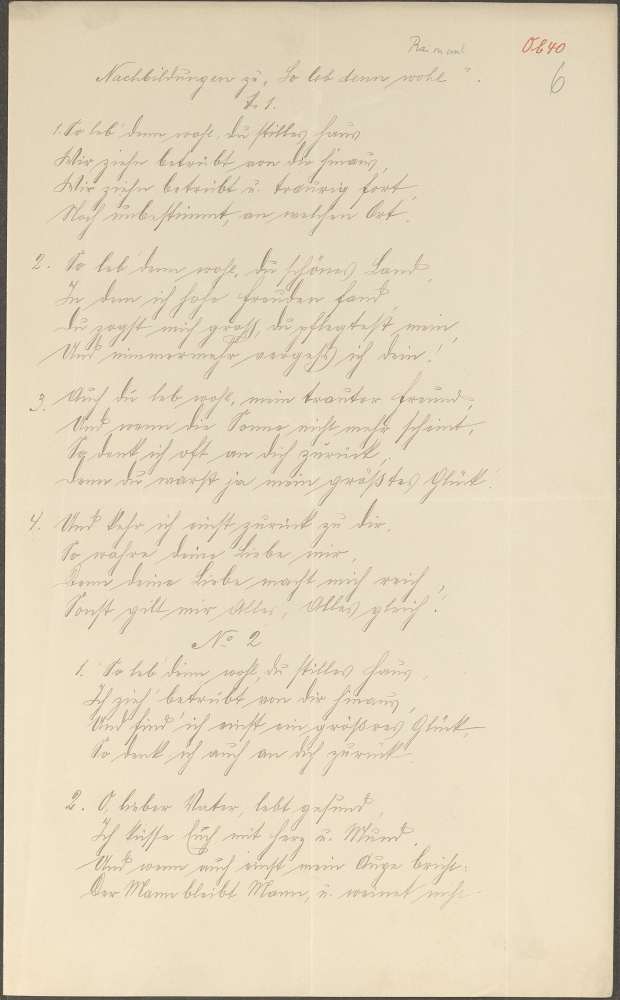 Raimund
Ob 40
6
Nachbildungen zu „So leb denn wohl".
№ 1.
1. So leb' denn wohl, du stilles Haus
Wir ziehn betrübt von dir hinaus,
Wir ziehn betrübt u. traurig fort,
Noch unbestimmt, an welchen Ort.
2. So leb' denn wohl, du schönes Land,
In dem ich hohe Freuden fand,
Du zogst mich groß, du pflegtest mein,
Und nimmermehr vergeß ich dein!
3. Auch du leb wohl, mein trauter Freund,
Und wenn die Sonne nicht mehr scheint,
So denk ich oft an dich zurück,
Denn du warst ja mein größtes Glück!
4. Und kehr ich einst zurück zu dir,
So wahre deine Liebe mir,
Denn deine Liebe macht mich reich,
Sonst gilt mir Alles, Alles gleich!
№ 2
1. So leb' denn wohl, du stilles Haus,
Ich zieh' betrübt von dir hinaus,
Und find' ich einst ein größres Glück,
So denk ich auch an dich zurück.
2. O, lieber Vater, lebt gesund,
Ich küsse Euch mit Herz u. Mund.
Und wenn auch einst mein Auge bricht:
Der Mann bleibt Mann, u. weinet nicht.